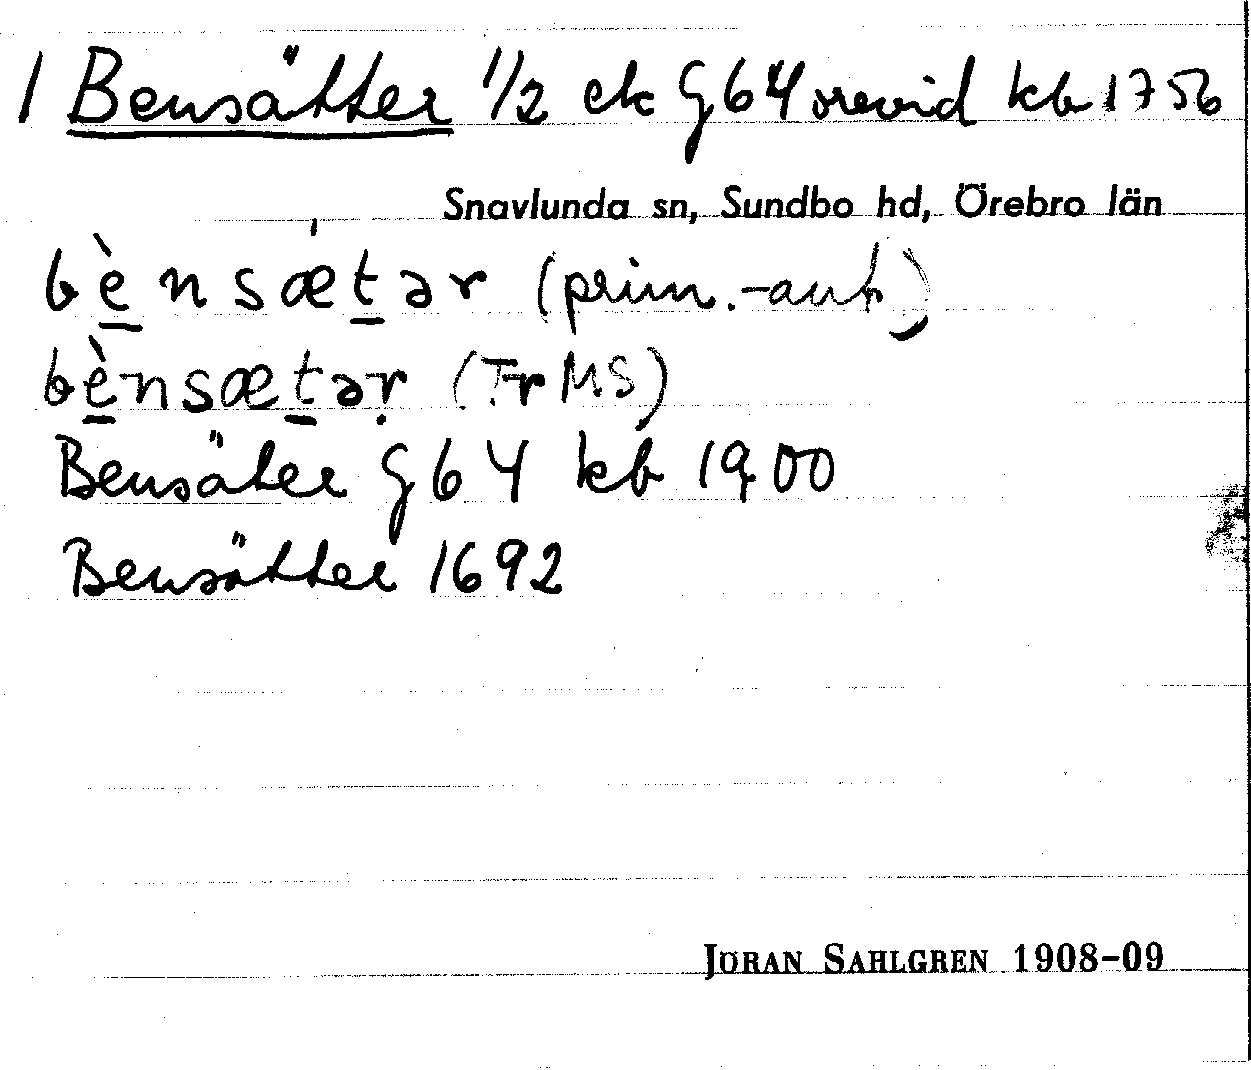 1 Bensätter 1/2 ek G 64 orevid kb 1756
Snavlunda sn, Sundbo hd, Örebro län
bè̱nsǽṯər (prim.-ant)
bè̱nsæṯəṛ (Fr MS)
Bensäter G 64 kb 1900
Bensätter 1692
JÖRAN SAHLGREN 1908-09